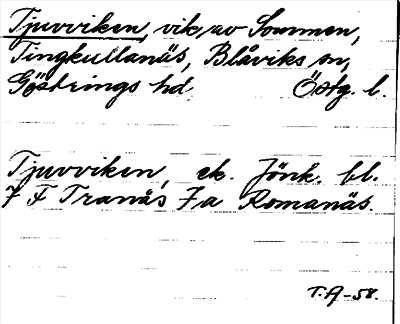 Tjuvviken, vik av Sommen,
Tingkullanäs, Blåviks sn,
Göstrings hd Östg. l.
Tjuvviken, ek. Jönk. bl.
7 F Tranås 7a Romanäs
T.A-58.